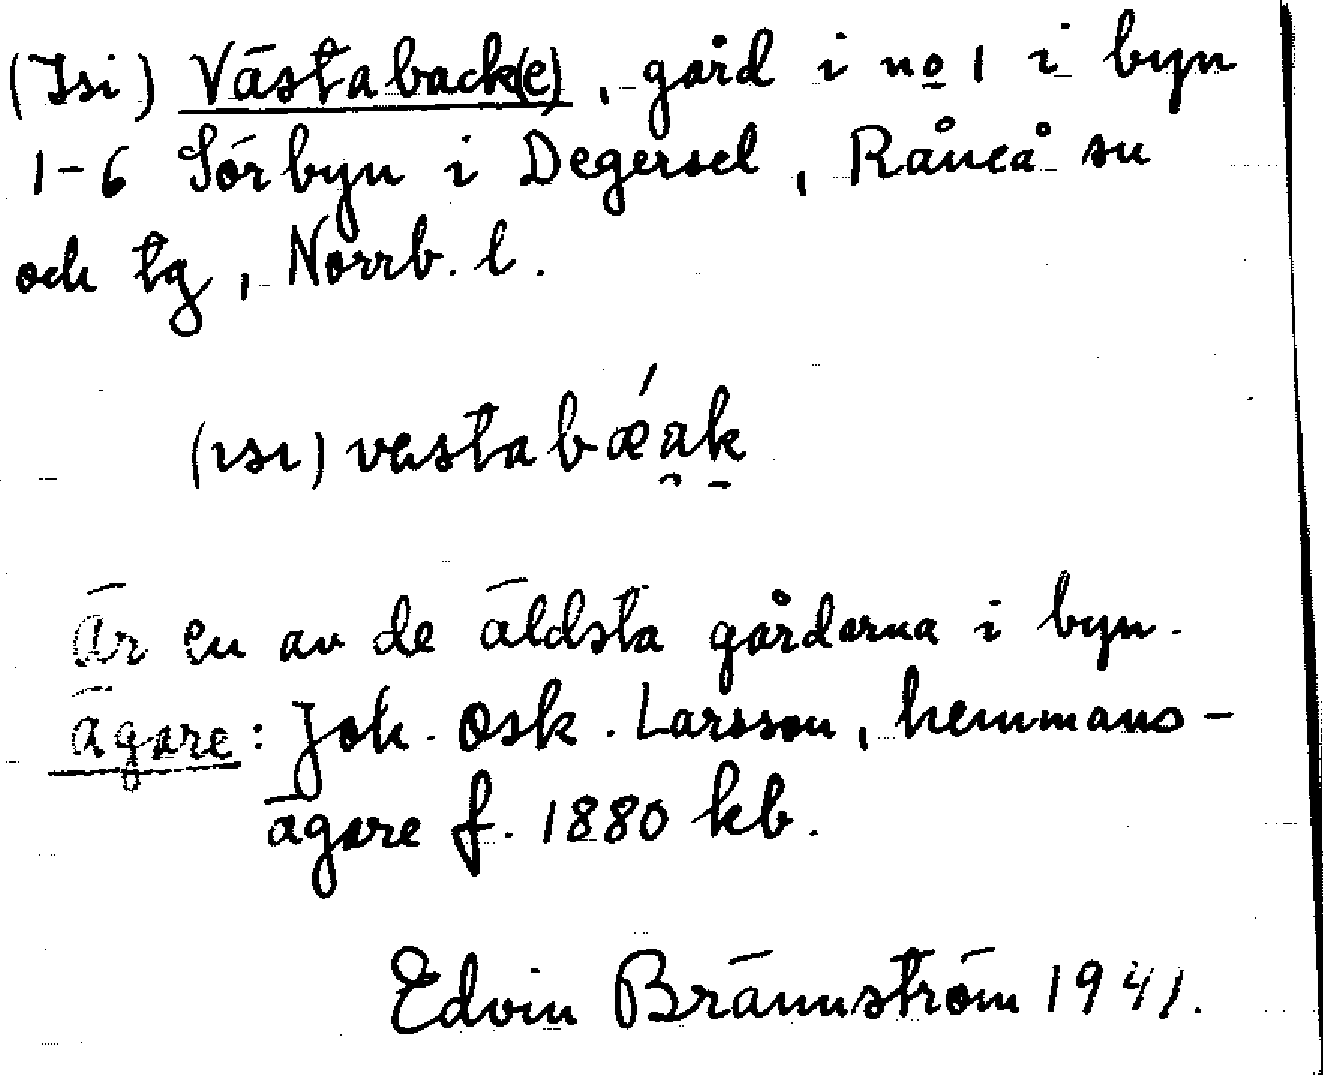 (Isi) Västaback(e), gård i no 1 i byn
1-6 Sörbyn i Degersel, Råneå sn
och tg, Norrb. l.
(ısı) vestabǽa̯k̲
Är en av de äldsta gårderna i byn.
Ägare: Joh. Osk. Larsson, hemmans-
ägare f. 1880 kb.
Edvin Brännström 1941.